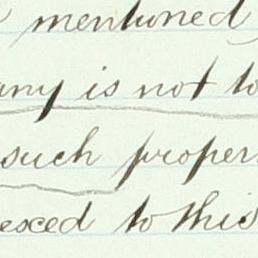 mentioned
any is not to
such proper
exed to this